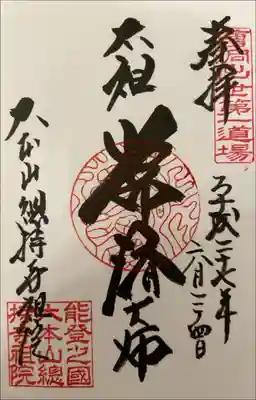 奉拝
曹洞出世第一道場
平成二十七年
六月二十四日
太祖
常濟大師
大本山總持寺祖院
能登之國
大本山總
持寺祖院